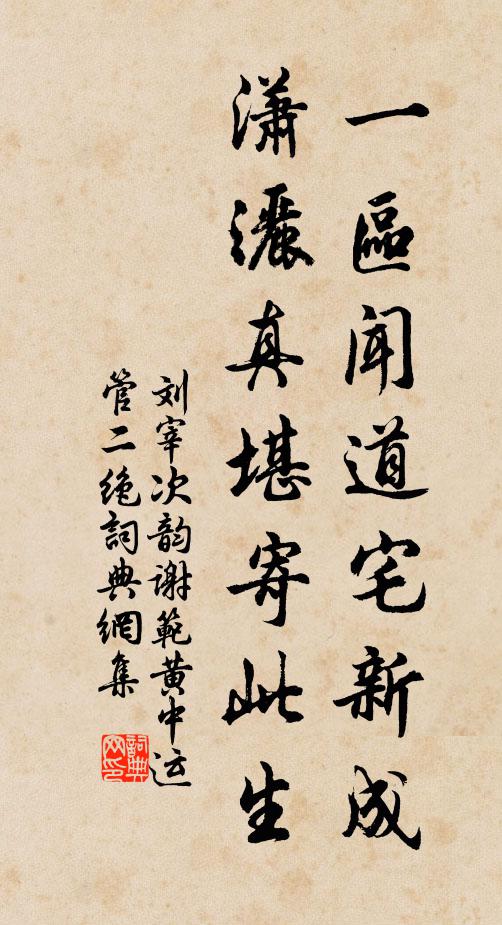 一區闻道宅新成
瀟灑真堪寄此生
刘宰次韵谢範黄中运
管二绝詞典網集
詞典网印